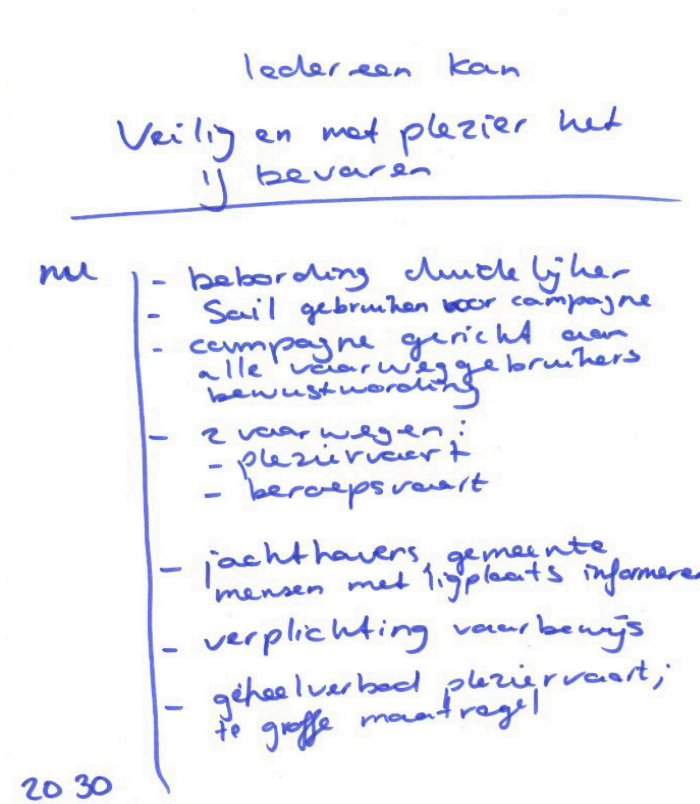 Iedereen kan
Veilig en met plezier het
ij bevaren
nu
- bebording duidelijker
- Sail gebruiken voor campagne
- campagne gericht aan
alle vaarweggebruikers
bewustwording
- 2 vaarwegen:
- pleziervaart
- beroepsvaart
- jachthavens, gemeente
mensen met ligplaats informeren
- verplichting vaarbewijs
- geheelverbod pleziervaart;
te groffe maatregel
2030